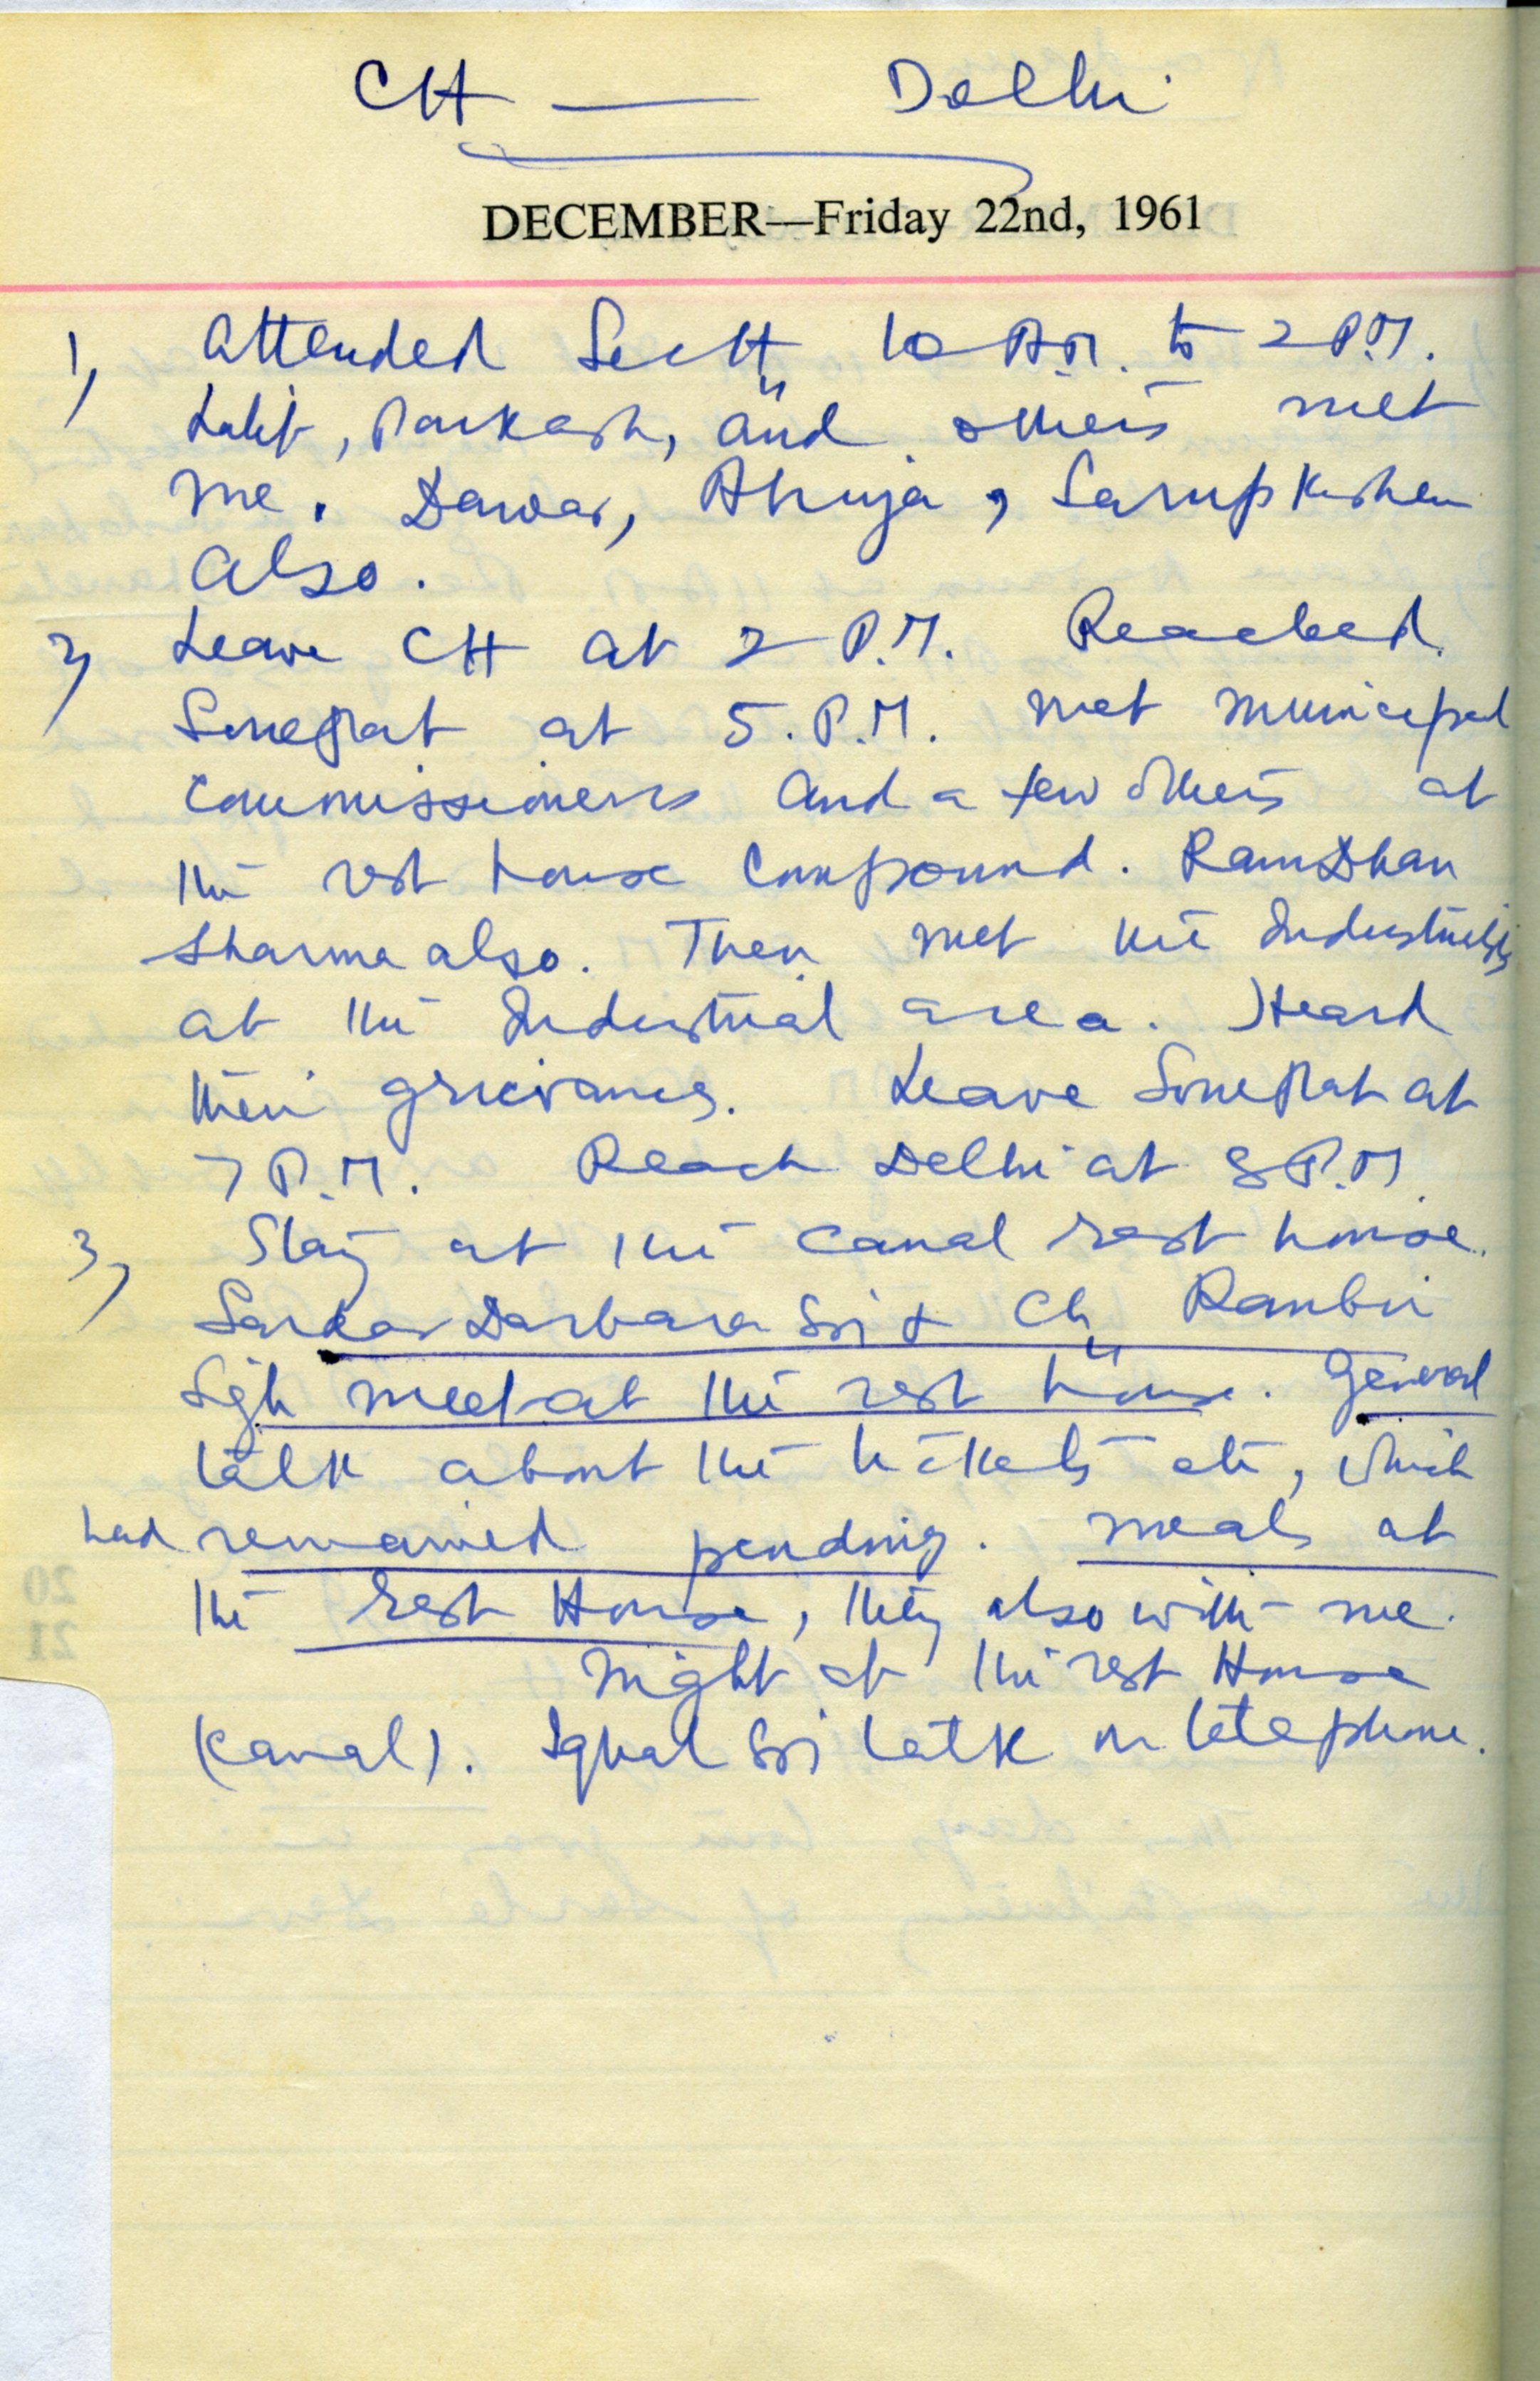 CH — Delhi
DECEMBER—Friday 22nd, 1961
1, Attended Sectt, 10 A.M. to 2 P.M.
Lalit, Parkash, and others met
me. Dawar, Ahuja, Sarup Kishen
also.
2, Leave CH at 2 P.M. Reached
Sonepat at 5. P.M. met municipal
commissioners and a few others at
the rest house compound. RamDhan
Sharma also. Then met the Industrialists
at the Industrial area. Heard
their grievances. Leave Sonepat at
7 P.M. Reach Delhi at 8 P.M.
3, Stay at the canal rest house.
Sardar Darbara & Ch, Ranbir
Sgh meet at the rest house. General
talk about the tickets etc, which
had remained pending. meals at
the rest House, they also with me.
Night at the rest House
(canal). Iqbal talk on telephone.
20
21